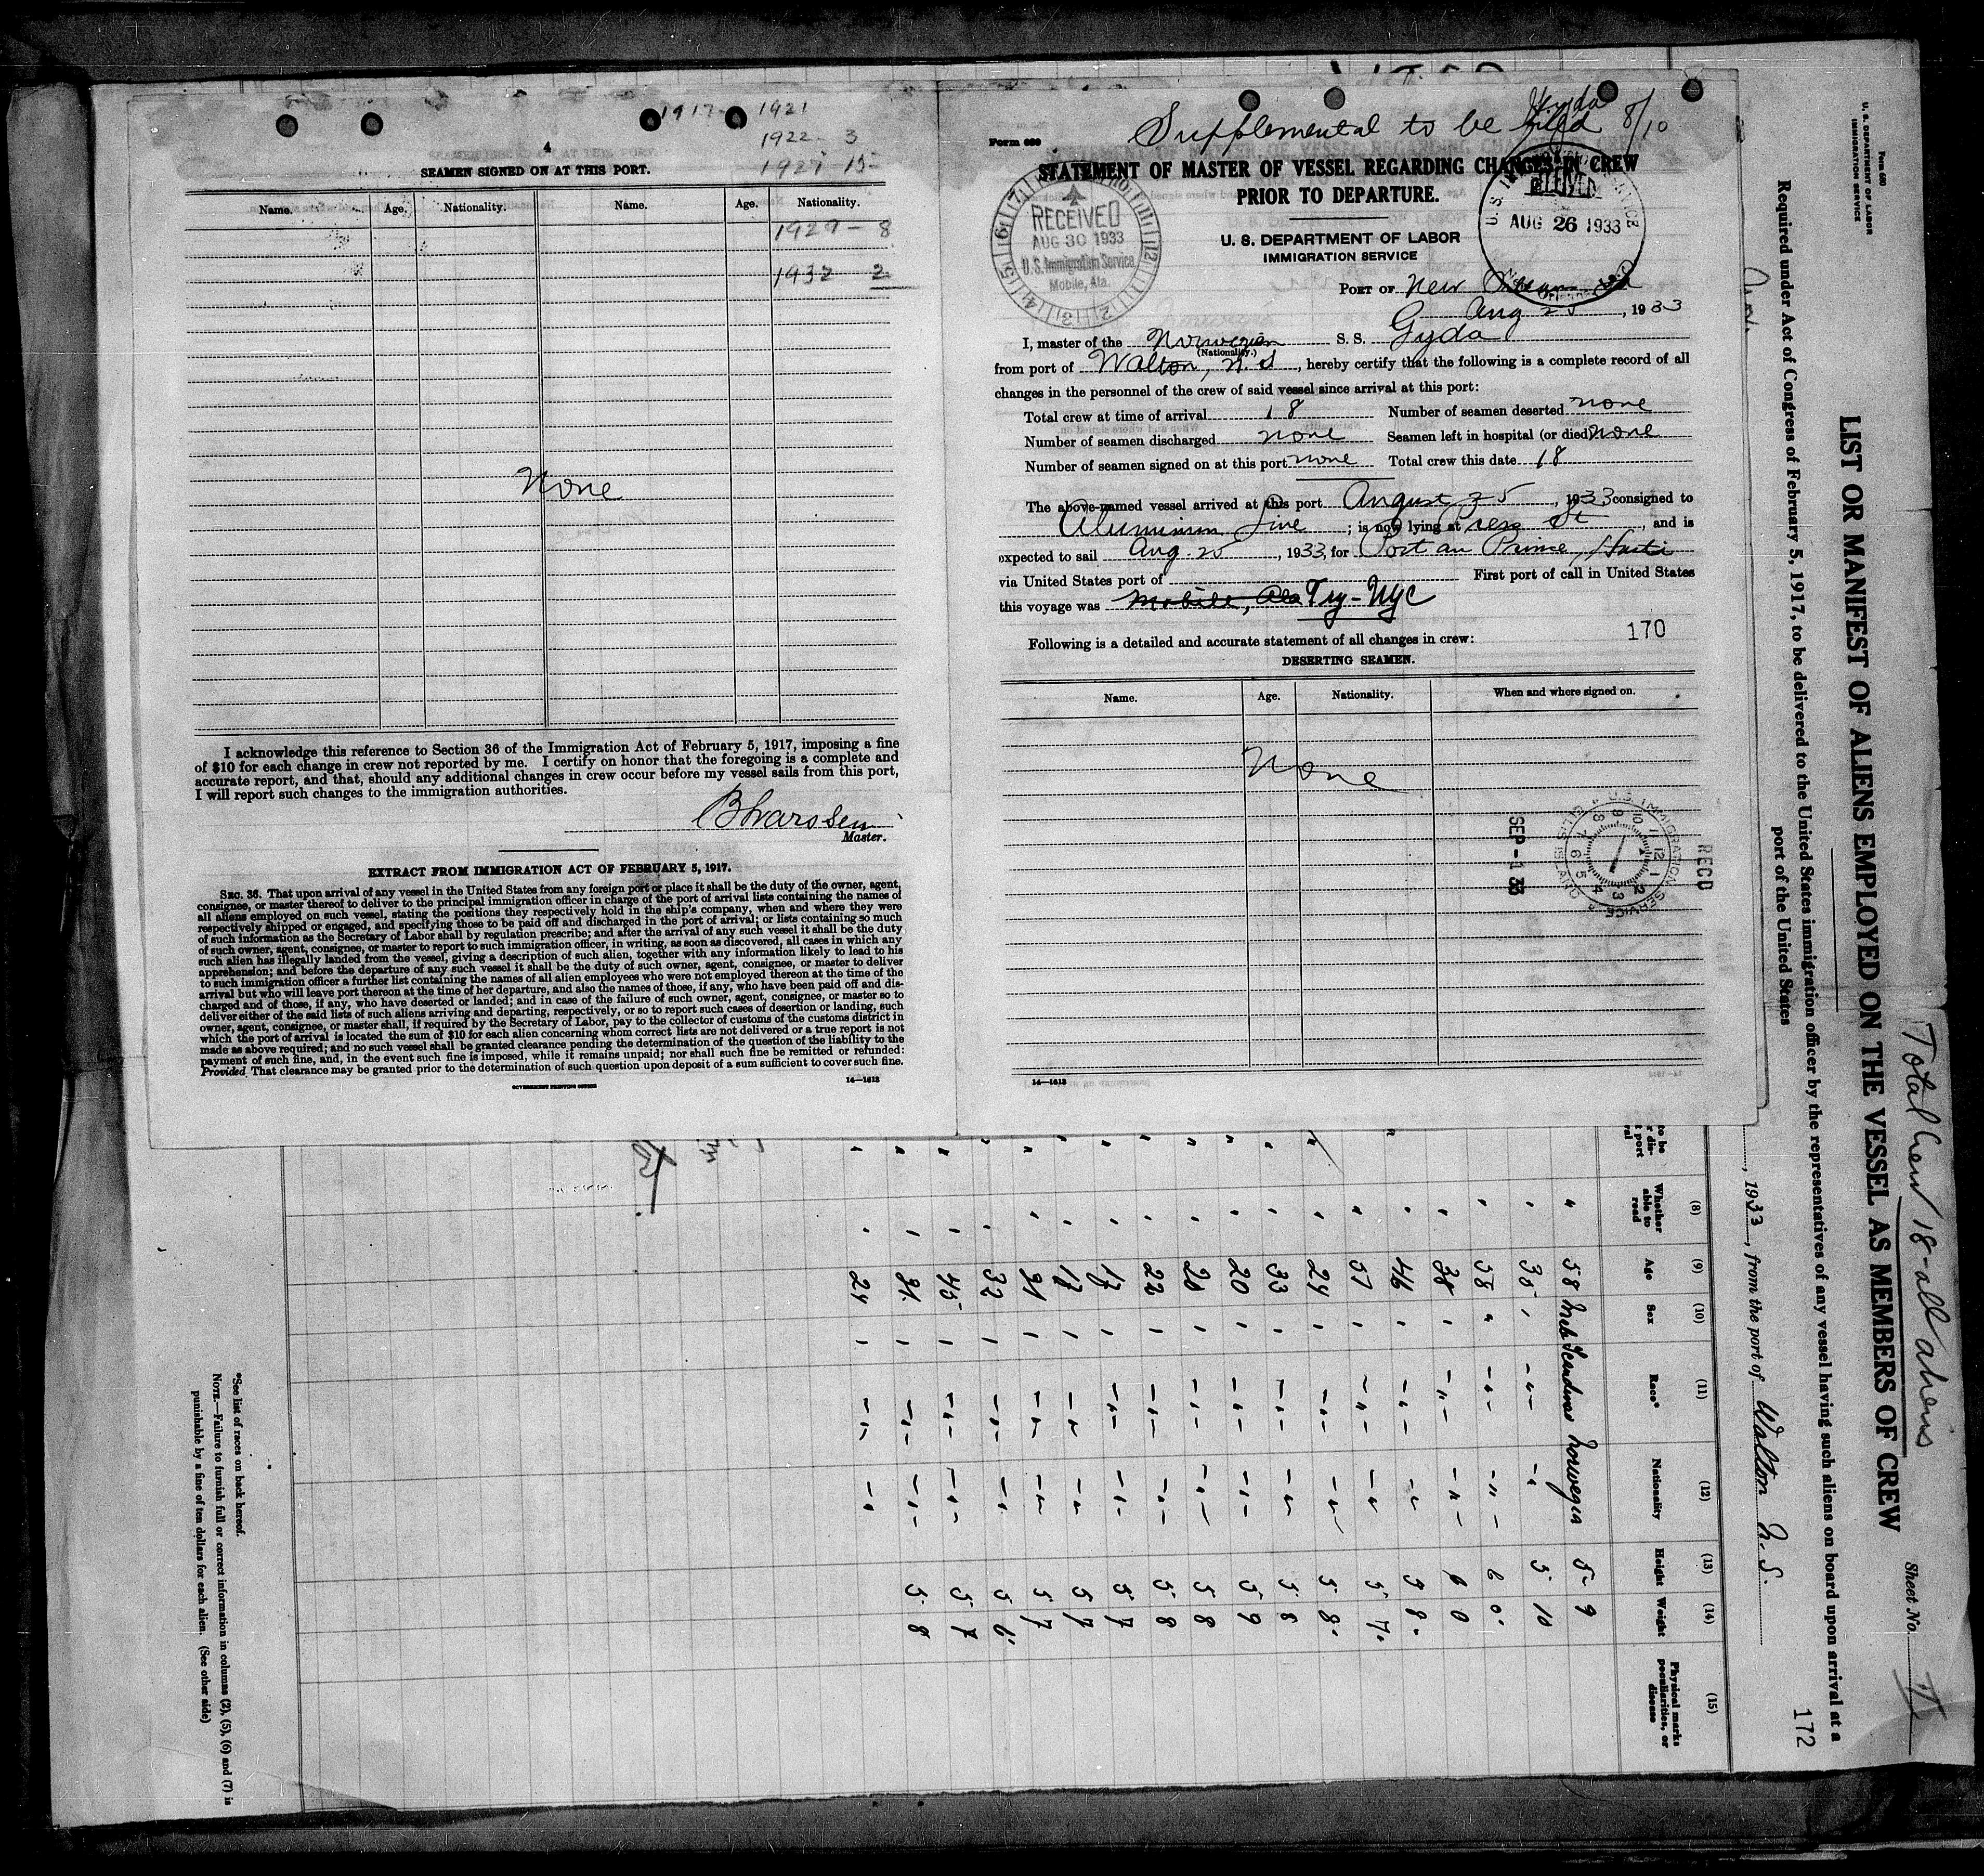 1917 1921
1922 - 3
1927 - 15
4
SEAMEN SIGNED ON AT THIS PORT.
Name. Age. Nationality. Name. Age. Nationality.
1929 - 8
1932 2
None
I acknowledge this reference to Section 36 of the Immigration Act of February 5, 1917, imposing a fine
of $10 for each change in crew not reported by me. I certify on honor that the foregoing is a complete and
accurate report, and that, should any additional changes in crew occur before my vessel sails from this port,
I will report such changes to the immigration authorities.
Master.
EXTRACT FROM IMMIGRATION ACT OF FEBRUARY 5, 1917.
SEC. 36. That upon arrival of any vessel in the United States from any foreign port or place it shall be the duty of the owner, agent,
consignee, or master thereof to deliver to the principal immigration officer in charge of the port of arrival lists containing the names of
all aliens employed on such vessel, stating the positions they respectively hold in the ship's company, when and where they were
respectively shipped or engaged, and specifying those to be paid off and discharged in the port of arrival; or lists containing so much
of such information as the Secretary of Labor shall by regulation prescribe; and after the arrival of any such vessel it shall be the duty
of such owner, agent, consignee, or master to report to such immigration officer, in writing, as soon as discovered, all cases in which any
such alien has illegally landed from the vessel, giving a description of such alien, together with any information likely to lead to his
apprehension; and before the departure of any such vessel it shall be the duty of such owner, agent, consignee, or master to deliver
to such immigration officer a further list containing the names of all alien employees who were not employed thereon at the time of the
arrival but who will leave port thereon at the time of her departure, and also the names of those, if any, who have been paid off and dis-
charged and of those, if any, who have deserted or landed; and in case of the failure of such owner, agent, consignee, or master so to
deliver either of the said lists of such aliens arriving and departing, respectively, or so to report such cases of desertion or landing, such
owner, agent, consignee, or master shall, if required by the Secretary of Labor, pay to the collector of customs of the customs district in
which the port of arrival is located the sum of $10 for each alien concerning whom correct lists are not delivered or a true report is not
made as above required; and no such vessel shall be granted clearance pending the determination of the question of the liability to the
payment of such fine, and, in the event such fine is imposed, while it remains unpaid; nor shall such fine be remitted or refunded:
Provided That clearance may be granted prior to the determination of such question upon deposit of a sum sufficient to cover such fine.
GOVERNMENT PRINTING OFFICE 14—1613
Gyda
Supplemental to be filed 8/10
Form 680
STATEMENT OF MASTER OF VESSEL REGARDING CHANGES IN CREW
PRIOR TO DEPARTURE.
U. S. DEPARTMENT OF LABOR
IMMIGRATION SERVICE
RECEIVED
AUG 30 1933
U.S. Immigration Service
Mobile, Ala.
RECEIVED
AUG 26 1933
PORT OF New Orleans La
Aug 25, 1933
I, master of the Norwegian S. S. Gyda
(Nationality.)
from port of Walton, N.S, hereby certify that the following is a complete record of all
changes in the personnel of the crew of said vessel since arrival at this port:
Total crew at time of arrival 18 Number of seamen deserted none
Number of seamen discharged none Seamen left in hospital (or died) none
Number of seamen signed on at this port none Total crew this date 18
The above-named vessel arrived at this port August 25, 1933 consigned to
Aluminum Line; is now lying at Press St, and is
expected to sail Aug 25, 1933, for Port au Prince, Haiti
via United States port of First port of call in United States
this voyage was Mobile, Ala Try - NYC
170
Following is a detailed and accurate statement of all changes in crew:
DESERTING SEAMEN.
Name. Age. Nationality. When and where signed on.
None
RECD
U. S. IMMIGRATION SERVICE ELLIS ISLAND
SEP - 1 33
14—1613
Form 680
U. S. DEPARTMENT OF LABOR
IMMIGRATION SERVICE
Total Crew 18 - all aliens
Sheet No.
LIST OR MANIFEST OF ALIENS EMPLOYED ON THE VESSEL AS MEMBERS OF CREW
Required under Act of Congress of February 5, 1917, to be delivered to the United States immigration officer by the representatives of any vessel having such aliens on board upon arrival at a
port of the United States
172
, 1933, from the port of Walton N.S.
(8) (9) (10) (11) (12) (13) (14) (15)
Whether able to read Age Sex Race* Nationality Height Weight Physical marks, peculiarities, or disease
" 58 Norwegia 5 9
" 5 10
" 58 " 6 0
" 38 6 0
" 46 5 8
" 57 5 7
" 24 5 8
" 33 5 8
" 20 5 9
" 20 5 8
" 22 5 8
" 17 5 7
" 17 5 7
" 21 5 7
" 32 5 6
" 45 5 7
" 21 5 8
" 24
*See list of races on back hereof.
NOTE.—Failure to furnish full or correct information in columns (2), (5), (6) and (7) is
punishable by a fine of ten dollars for each alien. (See other side)